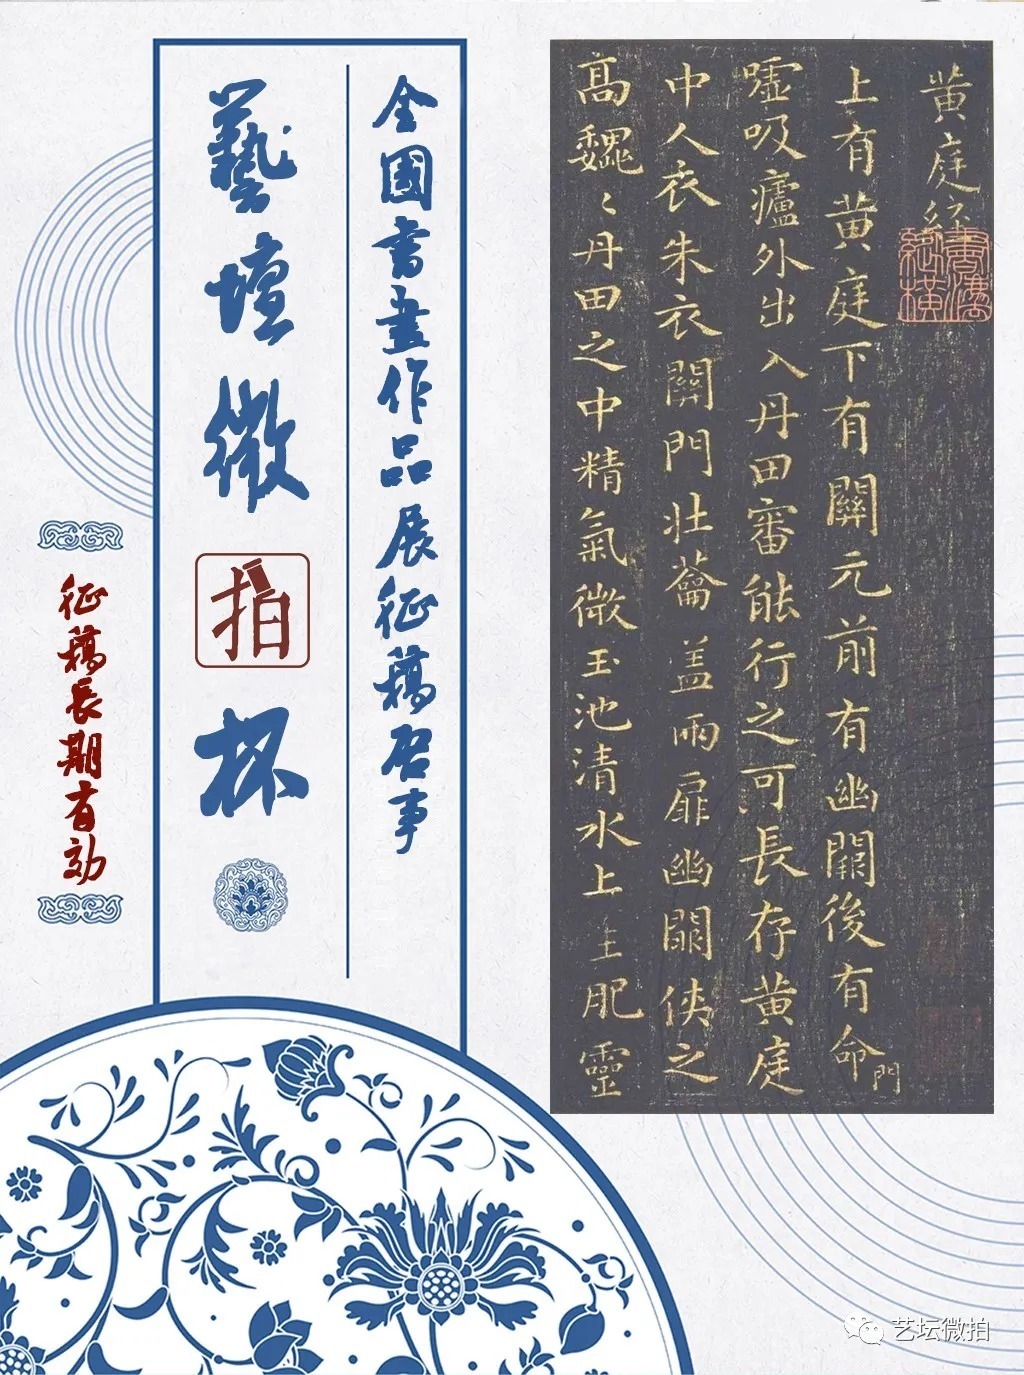 黄庭經
上有黄庭下有關元前有幽闕後有命門
嘘吸廬外出入丹田審能行之可長存黄庭
中人衣朱衣關門壮蘥盖兩扉幽闕侠之
高魏〻丹田之中精氣微玉池清水上生肥靈
全國書畫作品展征稿启事
藝壇微拍杯
征稿長期有効
艺坛微拍